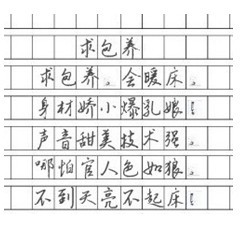 求包养
求包养。会暖床。
身材娇小爆乳娘！
声音甜美技术强。
哪怕官人色如狼。
不到天亮不起床！